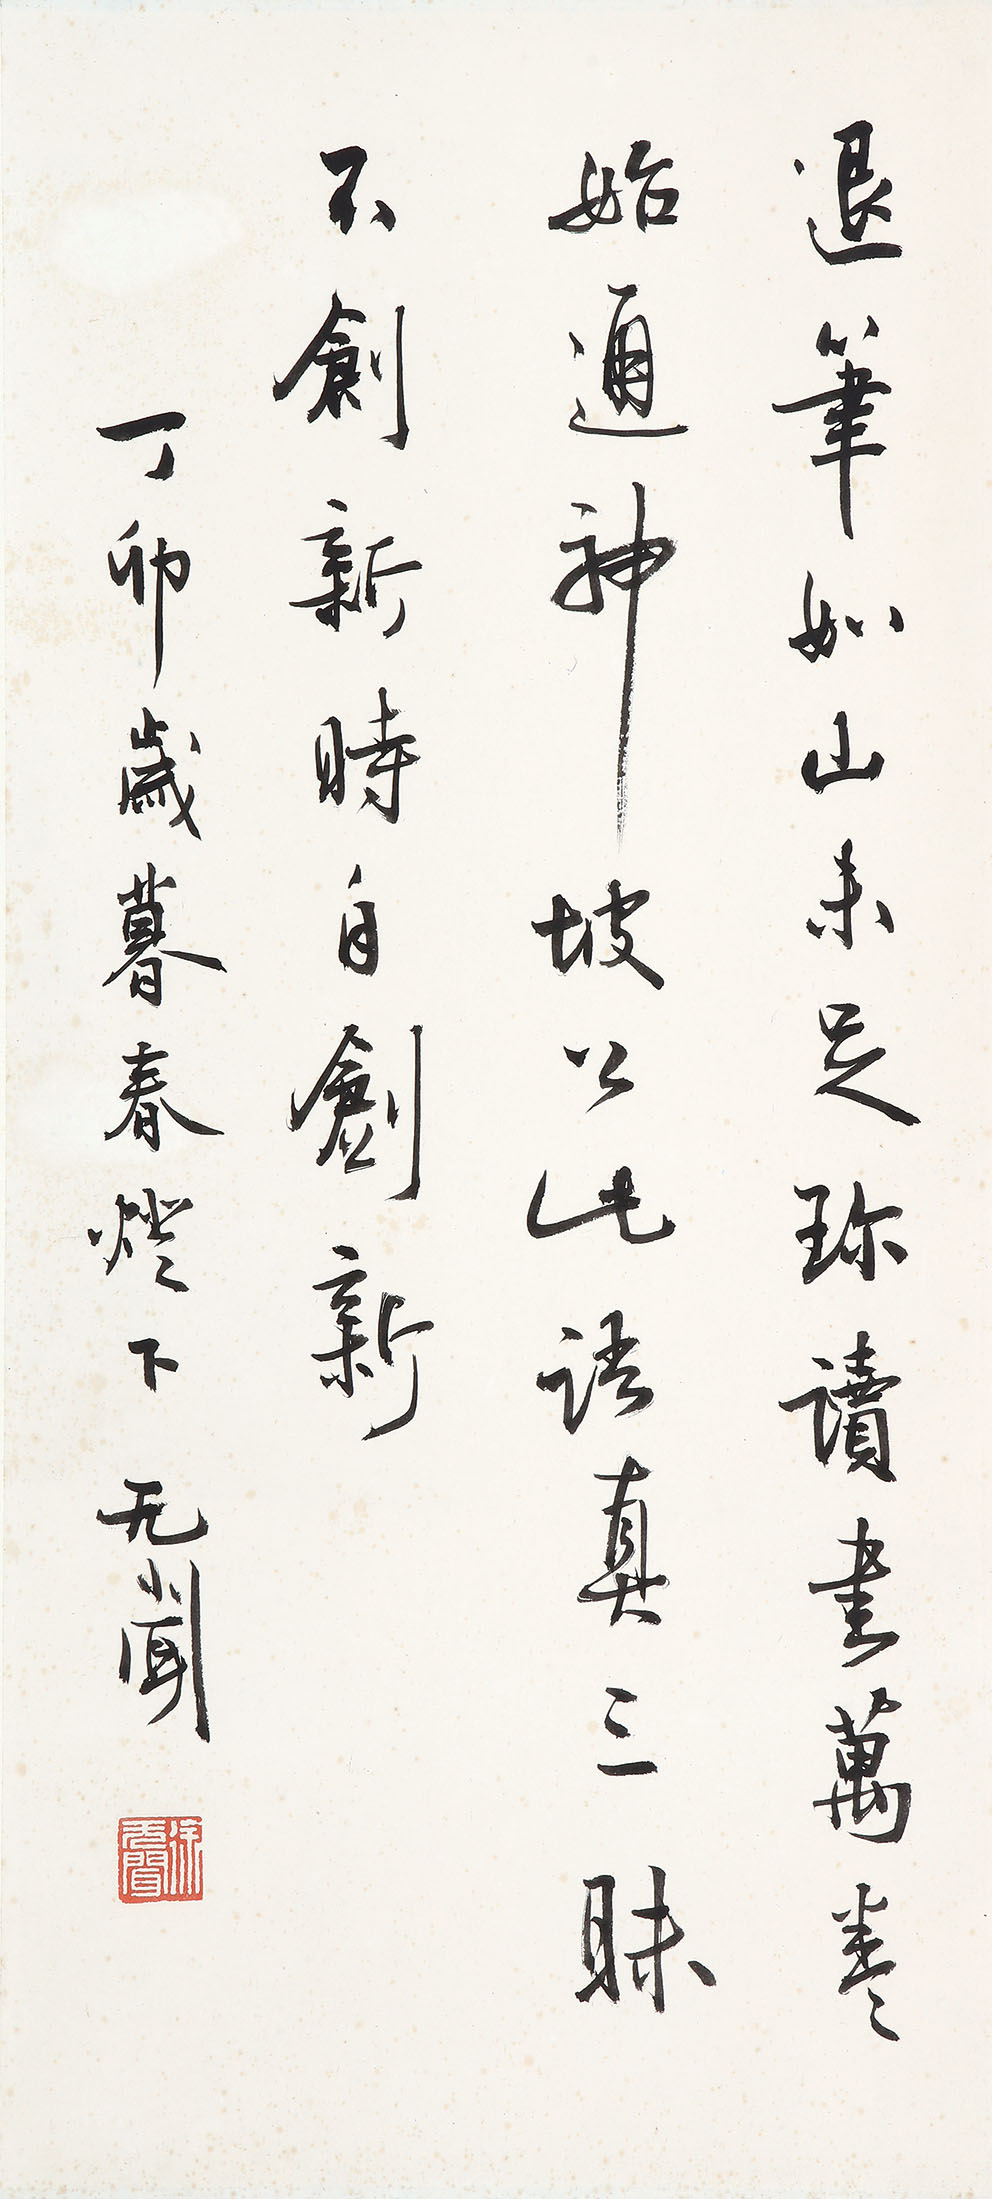 退筆如山未足珍讀書萬卷
始通神坡公此語真三昧
不創新時自創新
丁卯歲暮春燈下 无聞
徐无聞